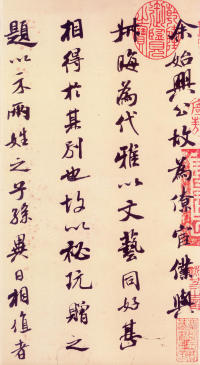 余始興公故為僚宦僕與
叔晦為代雅以文藝同好甚
相得於其別也故以秘玩贈之
題以示兩姓之子孫異日相值者